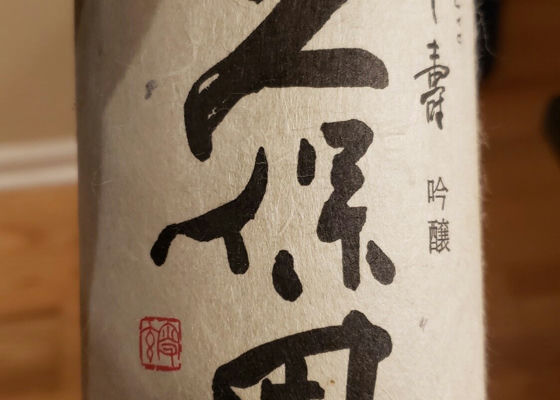 壽 吟醸
久保田